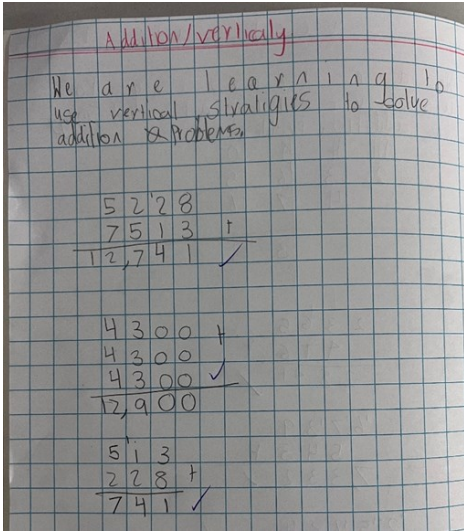 Addition/verticaly
We are learning to
use vertical stratigies to solve
addition & Problems.
5 2 ¹2 8
7 5 1 3 +
12,7 4 1 ✓
4 3 0 0 +
4 3 0 0
4 3 0 0 ✓
12,9 0 0
5 ¹1 3
2 2 8 +
7 4 1 ✓